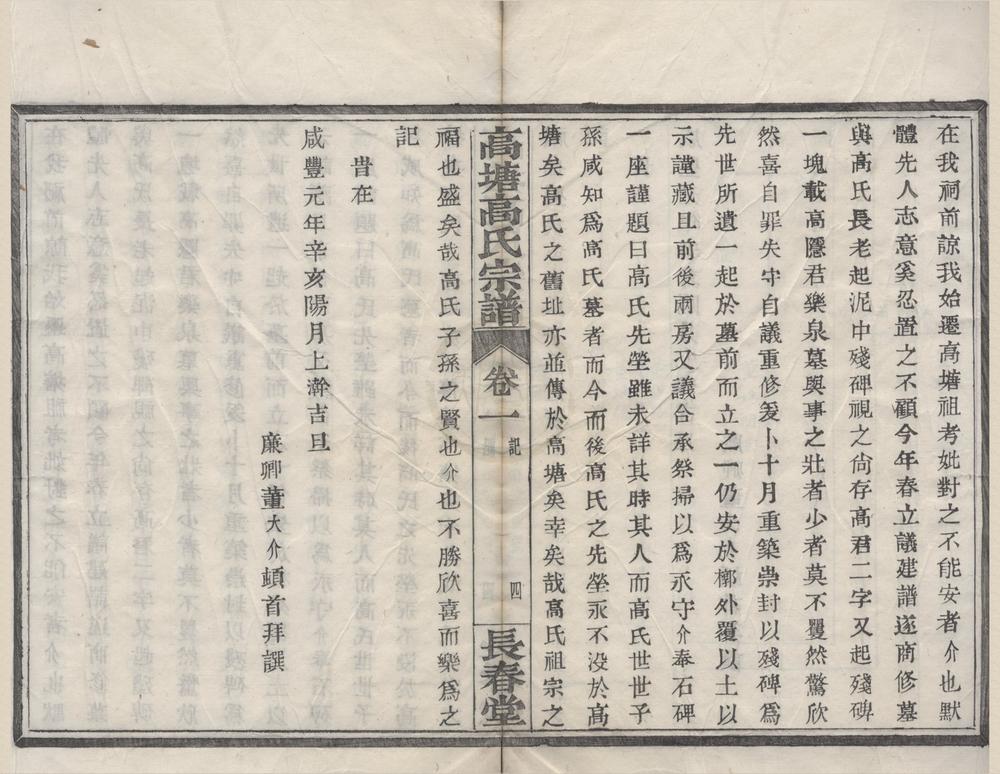 在我祠前諒我始遷高塘祖考妣對之不能安者介也默
體先人志意奚忍置之不顧今年春立議建譜遂商修墓
與高氏長老起泥中殘碑視之尙存高君二字又起殘碑
一塊載高隱君樂泉墓與事之壯者少者莫不矍然驚欣
然喜自罪失守自議重修爰卜十月重築崇封以殘碑爲
先世所遺一起於墓前而立之一仍安於槨外覆以土以
示謹藏且前後兩房又議合承祭掃以爲永守介奉石碑
一座謹題曰高氏先塋雖未詳其時其人而高氏世世子
孫咸知爲高氏墓者而今而後高氏之先塋永不没於高
塘矣高氏之舊址亦並傳於高塘矣幸矣哉高氏祖宗之
高塘高氏宗譜 卷一 記 四 長春堂
福也盛矣哉高氏子孫之賢也介也不勝欣喜而樂爲之
記
昔在
咸豐元年辛亥陽月上澣吉旦
廉卿董大介頓首拜譔